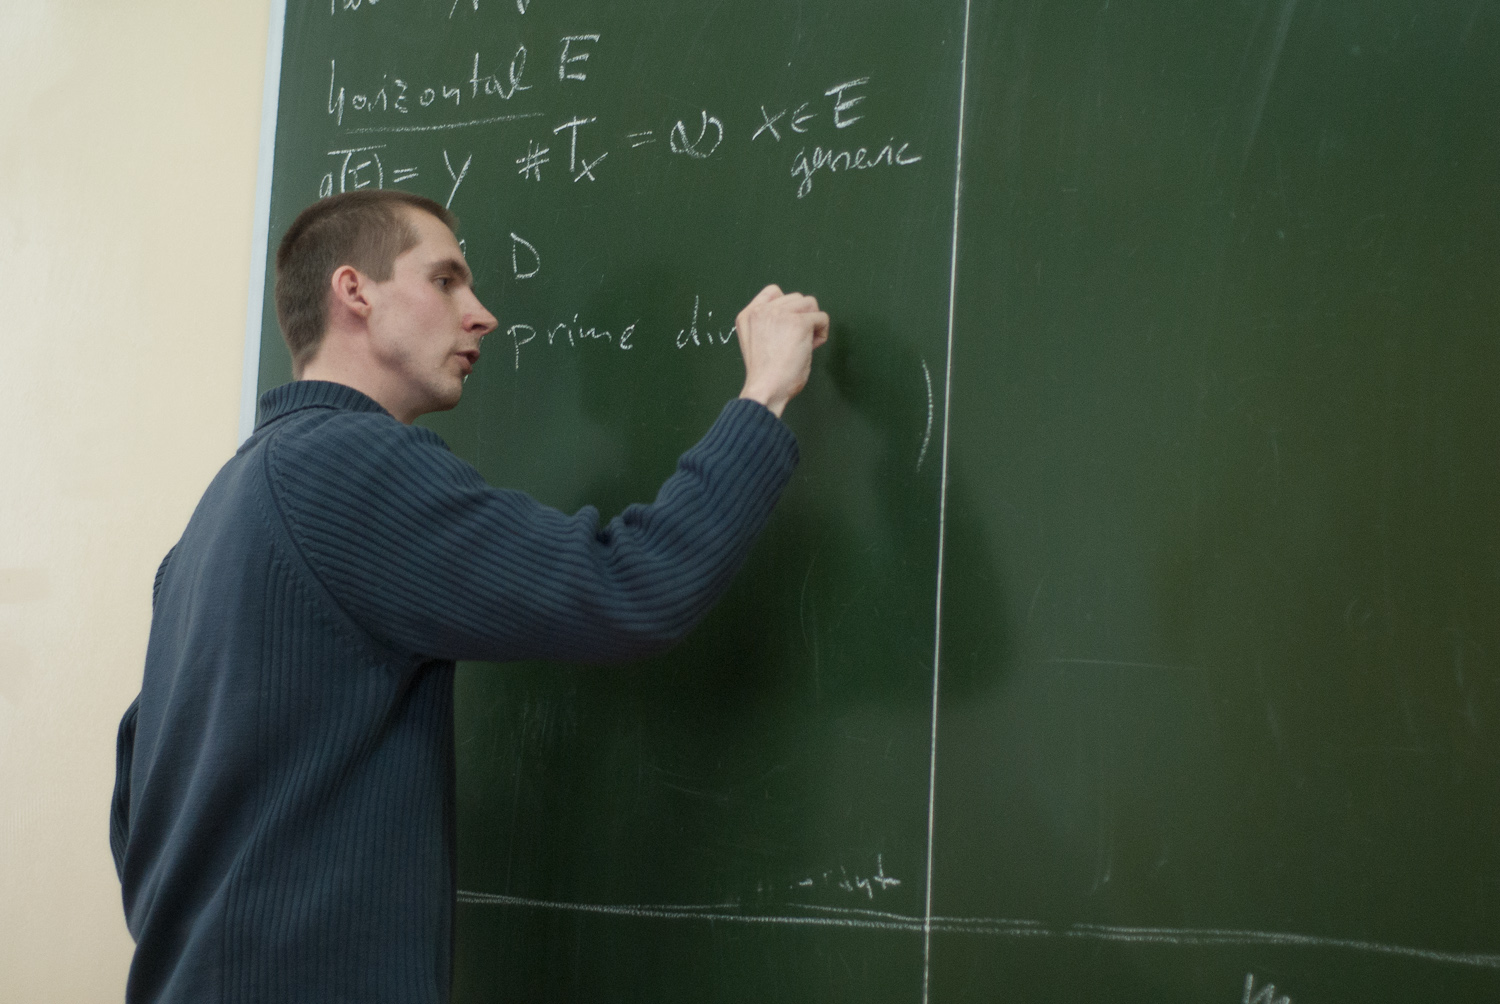 horizontal E
q(E) = Y #Tₓ = ∞ x ∈ E
generic
D
prime div